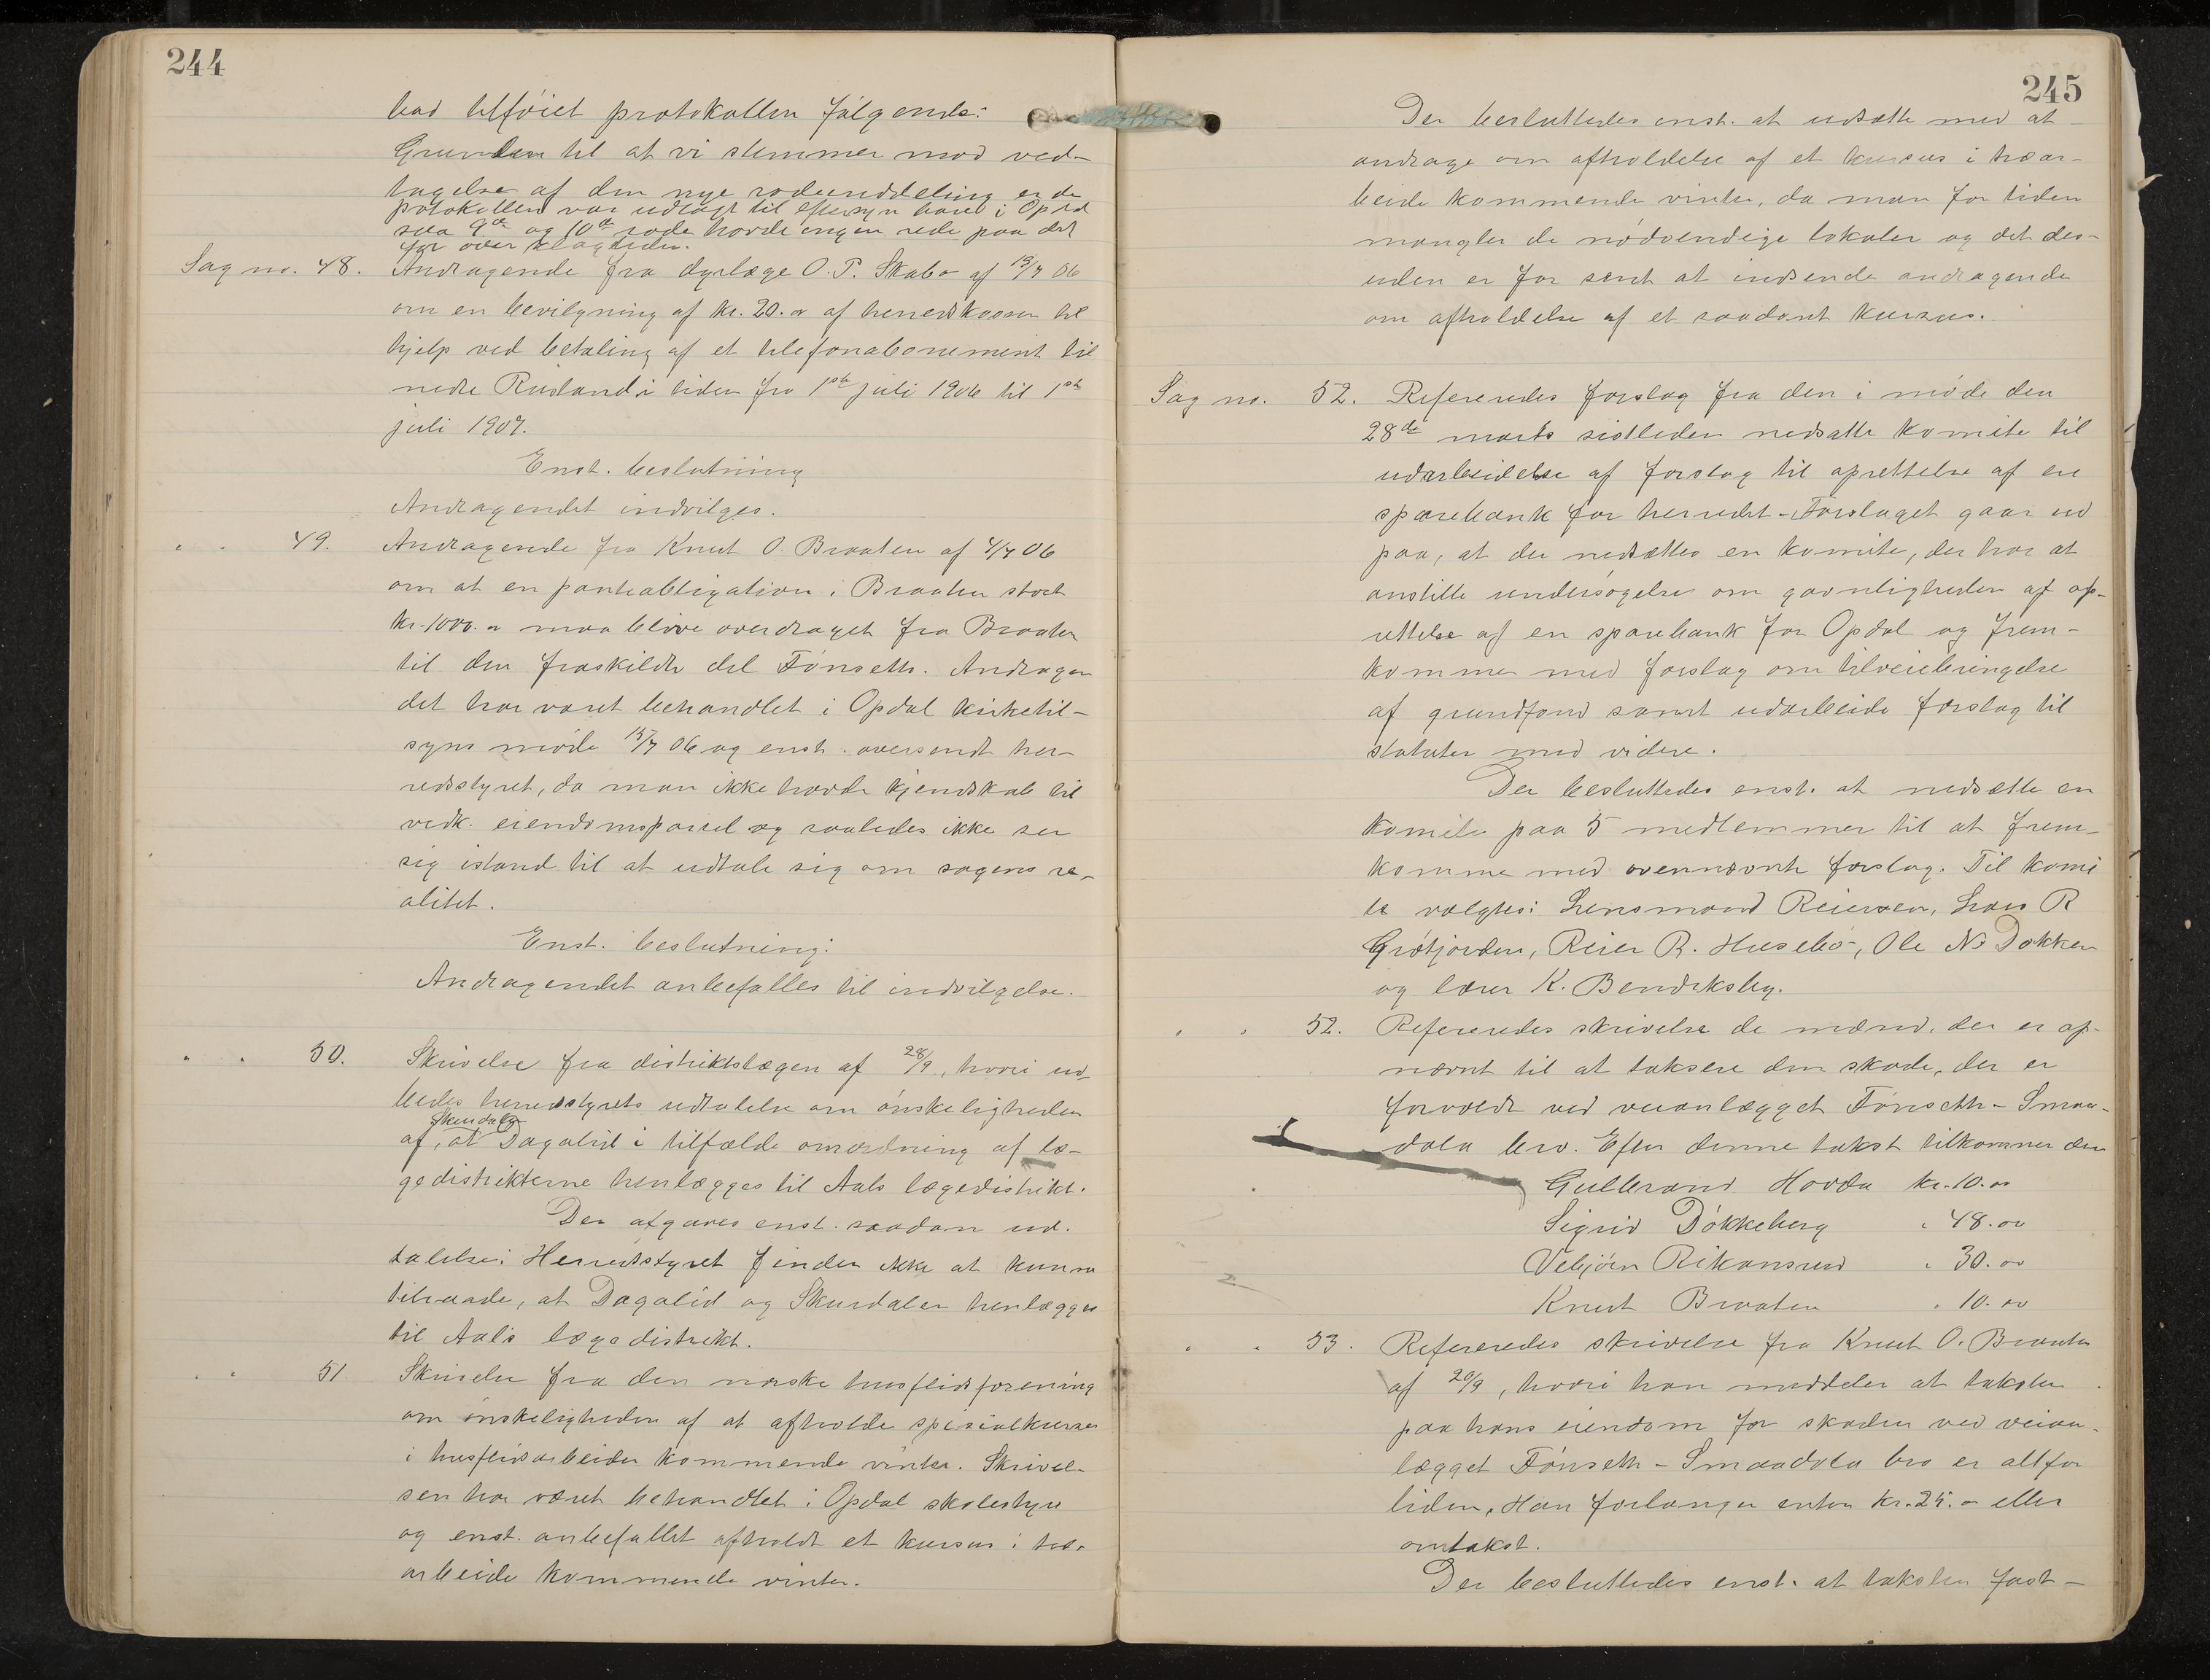 244
bad tilføiet protokollen følgende:
Grunden til at vi stemmer mod ved-
tagelse af den nye rodeinddeling er da
potokollen var udlagt til eftersyn bare i Opdal
saa 9de og 10de rode havde ingen rede paa det
før over klagtiden.
Sag no. 48. Andragende fra dyrlæge O. P. Skabo af 19/7 06
om en bevilgning af kr. 20.00 af herredskassen til
hjelp ved betaling af et telefonabonement til
nedre Rusland i tiden fra 1ste juli 1906 til 1ste
juli 1907.
Enst. beslutning
Andragendet indvilges.
" " 49. Andragende fra Knut O. Braaten af 4/7 06
om at en panteobligation i Braaten stort
kr. 1000.00 maa blive overdraget fra Braaten
til den fraskildte del Fönseth. Andragen
det har været behandlet i Opdal kirketil-
syns møde 15/7 06 og enst. oversendt her-
redsstyret, da man ikke havde kjendskab til
vedk. eiendomsparcel og saaledes ikke ser
sig istand til at udtale sig om sagens re-
alitet.
Enst. beslutning:
Andragendet anbefalles til indvilgelse.
" " 50. Skrivelse fra distriktslægen af 28/9, hvori ud-
bedes herredstyrets udtalelse om ønskeligheden
Skurdalen
af, at Dagalid i tilfælde omordning af læ-
gedistrikterne henlægges til Aals lægedistrikt.
Der afgaves enst. saadan ud-
talelse: Herredstyret finder ikke at kunne
tilraade, at Dagalid og Skurdalen henlægges
til Aals lægedistrikt.
" " 51 Skrivelse fra den norske husflidsforening
om ønskeligheden af at afholde spisialkurser
i husflidsarbeider kommende vinter. Skrivel-
sen har været behandlet i Opdal skolestyre
og enst. anbefallet afholdt et kursus i træ-
arbeide kommende vinter.
245
Der besluttedes enst. at udsætte med at
andrage om afholdelse af et kursus i træar-
beide kommende vinter, da man for tiden
mangler de nødvendige lokaler og det des-
uden er for sent at indsende andragende
om afholdelse af et saadant kursus.
Sag no. 52. Refereredes forslag fra den i møde den
28de marts sistleden nedsatte komite til
udarbeidelse af forslag til oprettelse af en
sparebank for herredet. Forslaget gaar ud
paa, at der nedsættes en komite, der har at
anstille undersøgelse om gavnligheden af op-
rettelse af en sparebank for Opdal og frem-
komme med forslag om tilveiebringelse
af grundfond samt udarbeide forslag til
statuter med videre.
Der besluttedes enst. at nedsætte en
komite paa 5 medlemmer til at frem-
komme med ovennævnte forslag. Til komi
te valgtes: Lensmand Reiersen, Lars R
Grøtjorden, Reier R. Husebø, Ole N. Dokken
og lærer K. Bendiksby.
" " 52. Refereredes skrivelse de mænd, der er op-
nævnt til at taksere den skade, der er
forvoldt ved veianlægget Fönseth - Smaa-
dola bro. Efter denne takst tilkommer den
Gulbrand Hovda kr. 10.00
Sigrid Døkkeberg " 48.00
Vebjørn Rikansrud " 30.00
Knut Braaten " 10.00
" " 53. Refereredes skrivelse fra Knut O. Braaten
af 20/9, hvori han meddeler at taksten
paa hans eiendom for skaden ved veian-
lægget Fönseth - Smaadola bro er altfor
liden. Han forlanger enten kr. 25.00 eller
omtakst.
Der besluttedes enst. at taksten fast-